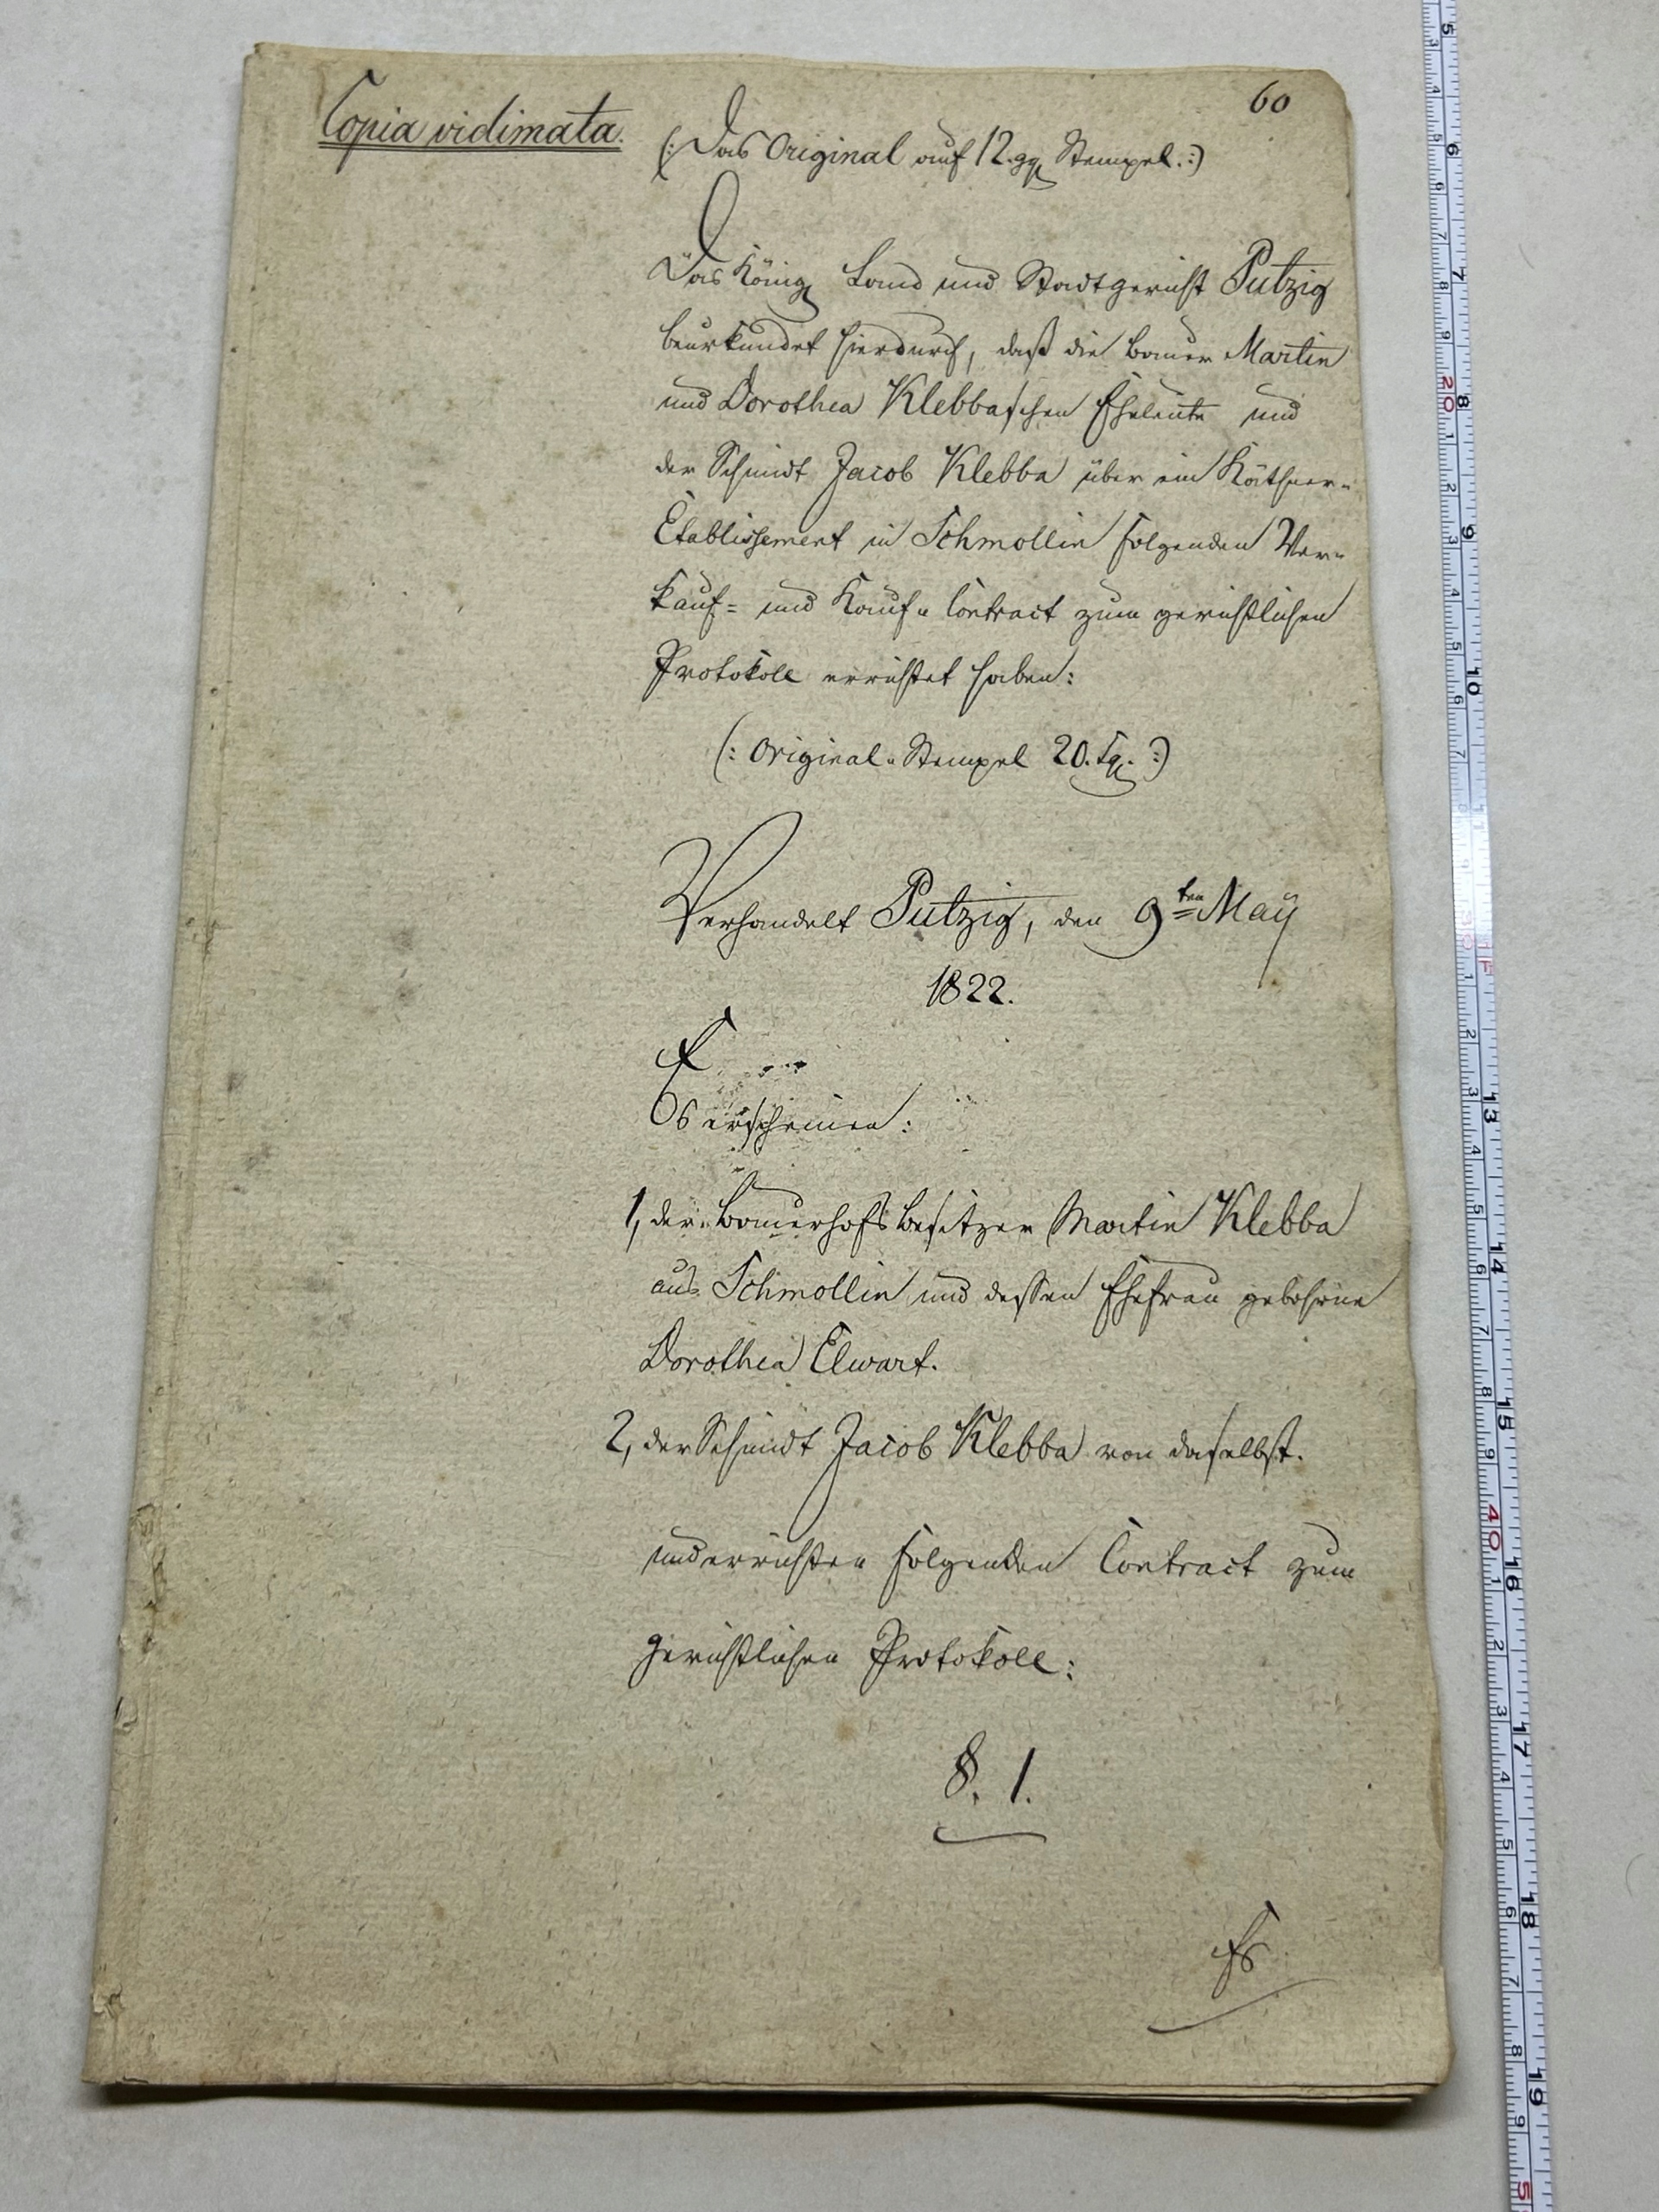 60
Copia vidimata.
(: Das Original auf 12. gg Stempel. :)
Das Königl Land und Stadtgericht Putzig
beurkundet hierdurch, daß die Bauer Martin
und Dorothea Klebbaschen Eheleute und
der Schmidt Jacob Klebba über ein Käthner-
Etablissement in Schmollin folgenden Ver-
kauf- und Kauf-Contract zum gerichtlichen
Protokoll errichtet haben:
(: Original-Stempel 20. Sg. :)
Verhandelt Putzig, den 9ten May
1822.
Es erscheinen:
1, der Bauerhofsbesitzer Martin Klebba
aus Schmollin und dessen Ehefrau gebohrne
Dorothea Elwart.
2, der Schmidt Jacob Klebba von daselbst.
und errichten folgenden Contract zum
gerichtlichen Protokoll:
§. 1.
Es